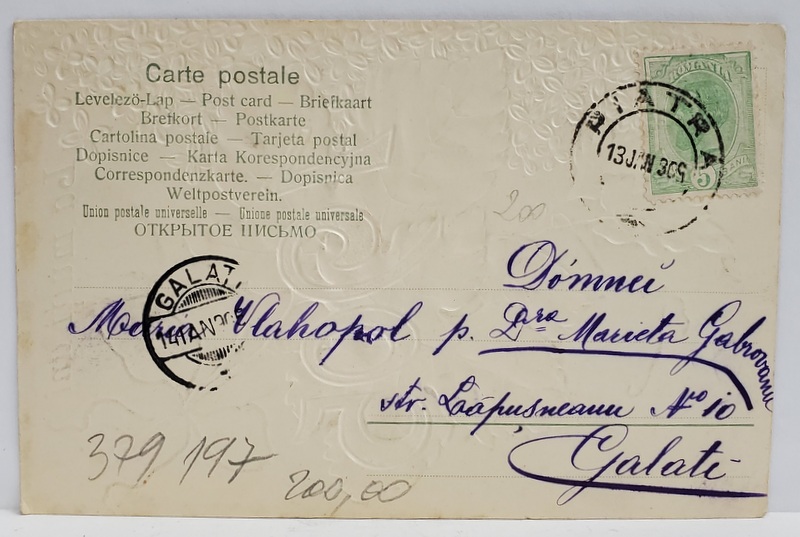 Carte postale
Levelező-Lap — Post card — Briefkaart
Brefkort — Postkarte
Cartolina postale — Tarjeta postal
Dopisnice — Karta Korespondencyjna
Correspondenzkarte. — Dopisnica
Weltpostverein.
Union postale universelle — Unione postale universale
ОТКРЫТОЕ ПИСЬМО
PIATRA
13 JAN 906
5
BANI
200
GALATI
14 IAN 90
Dómnei
Maria Vlahopol p. Dra Marieta Gabroveanu
str. Lăpuşneanu No 10
Galati
379 197
200,00